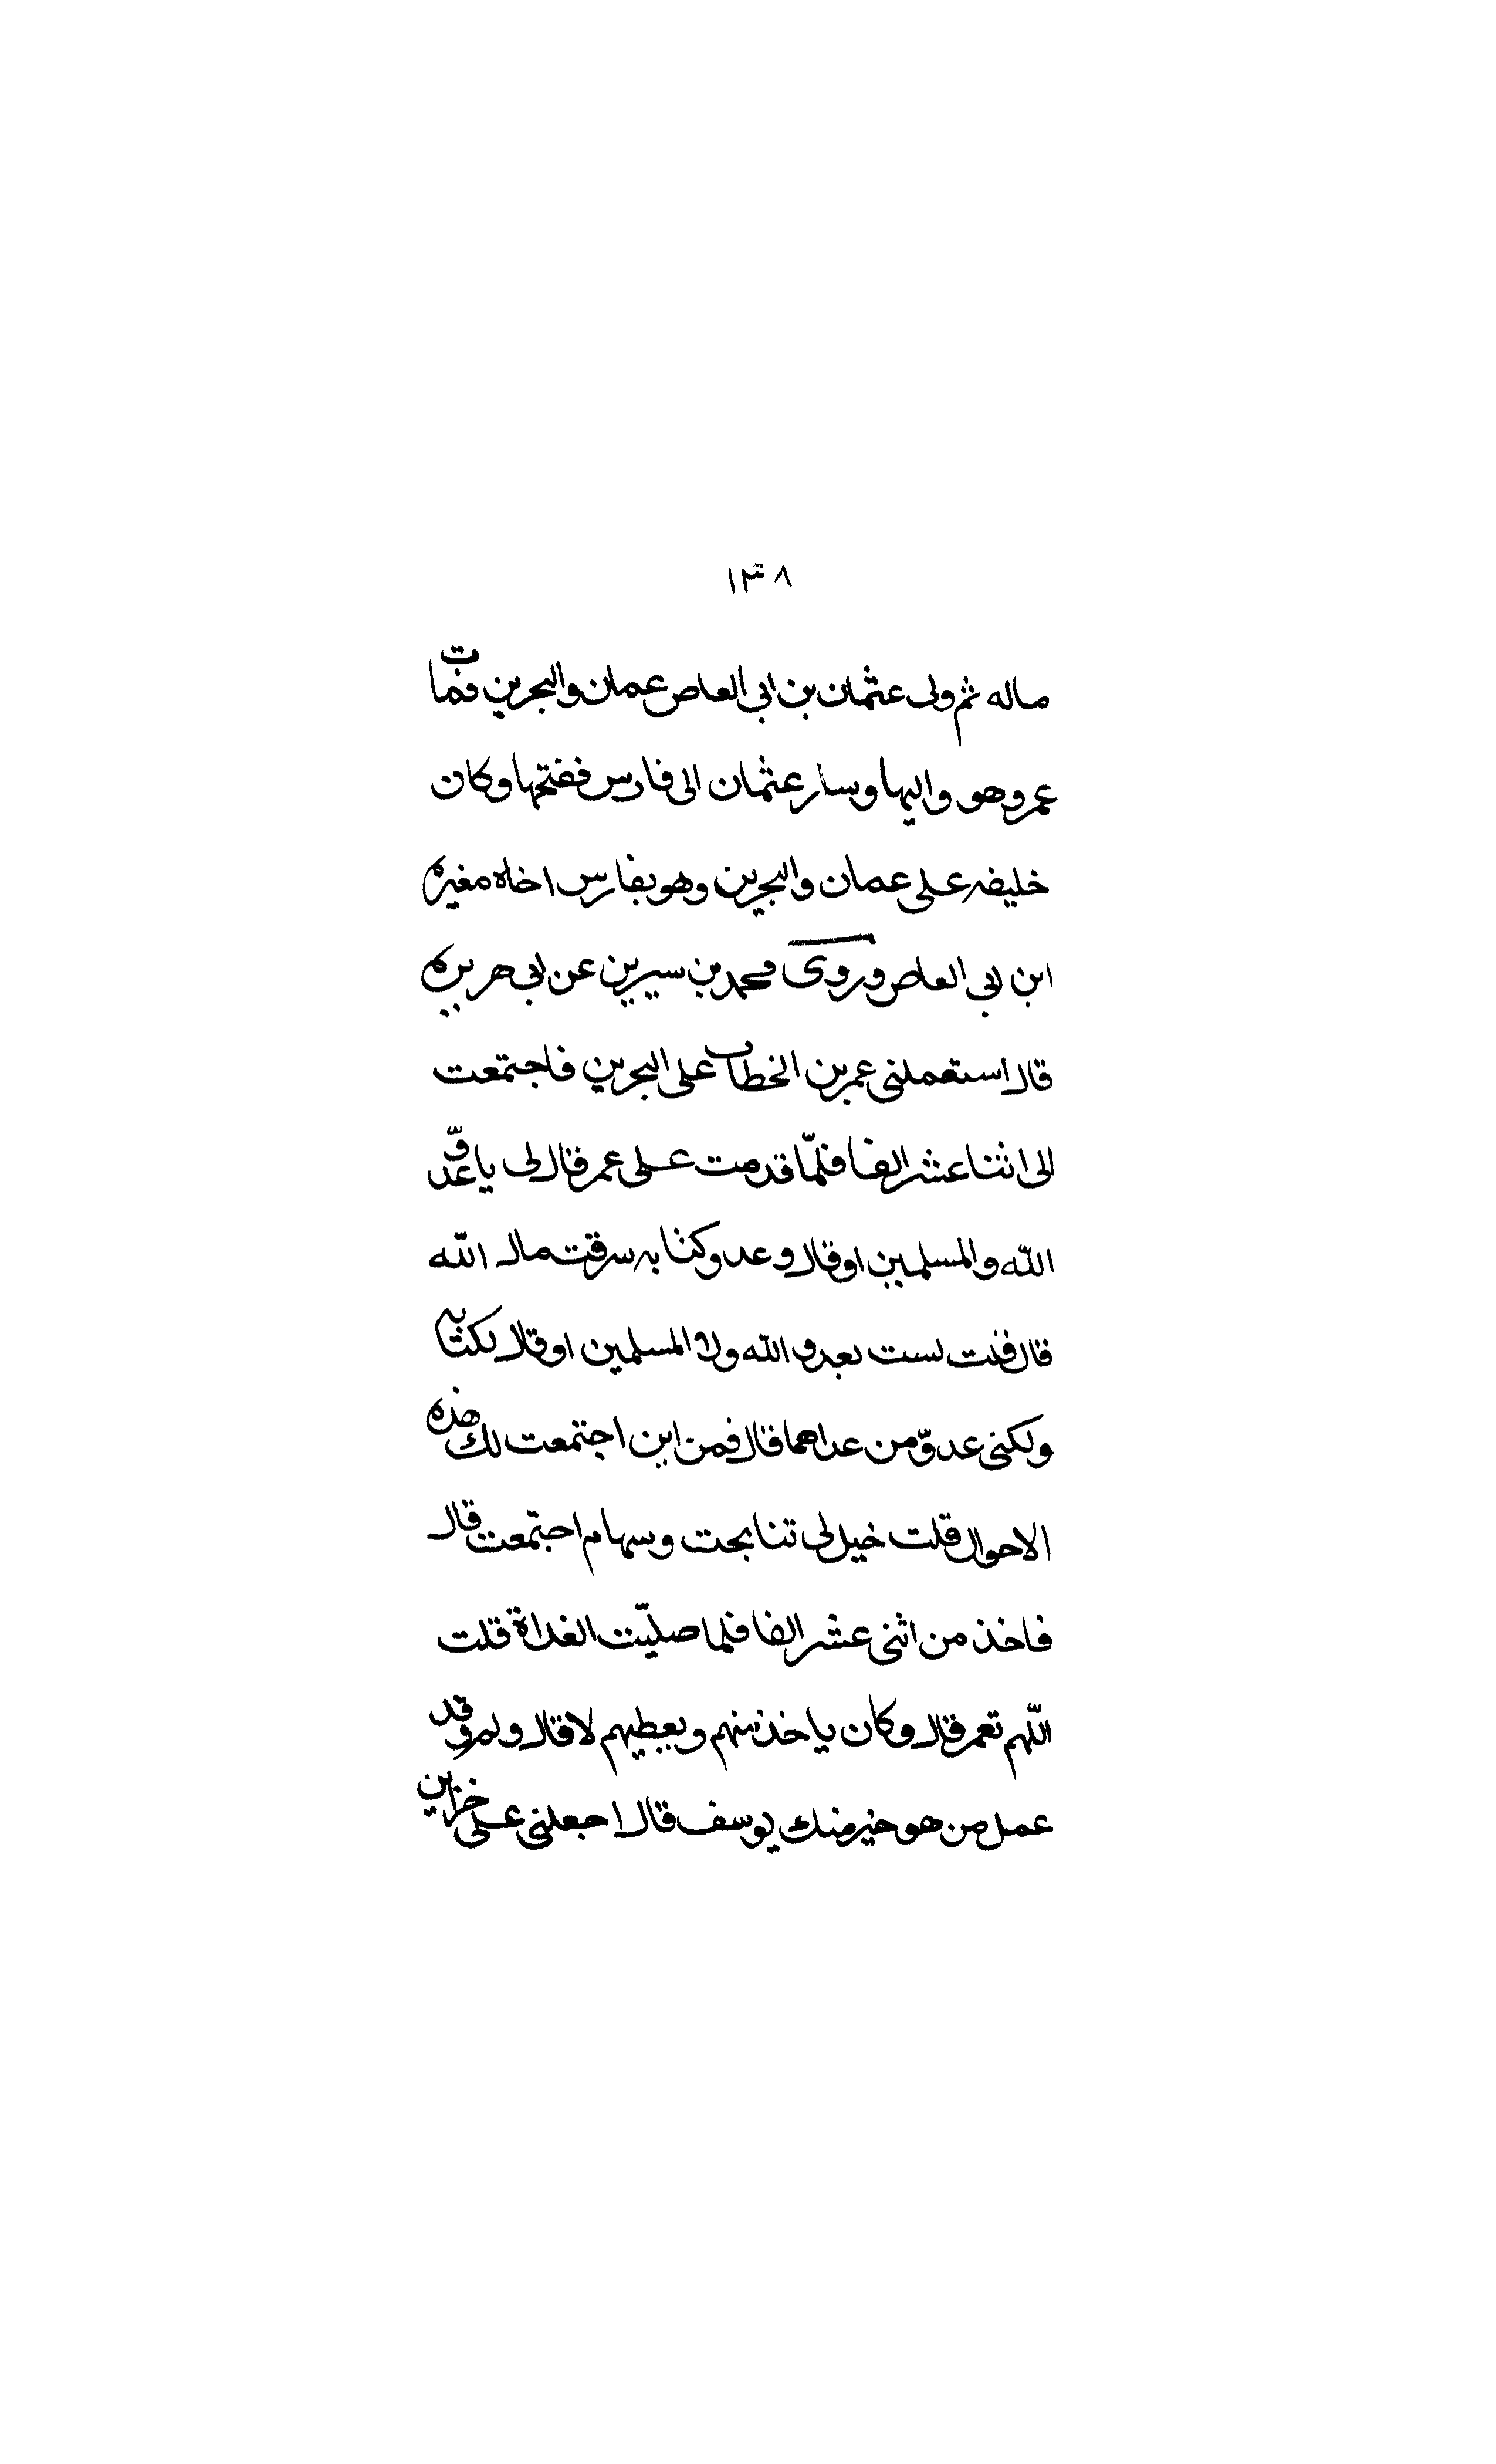 ١٣٨
ماله ثم ولى عثمان بن ابي العاص عمان والبحرين فمات
عمر وهو واليها وسار عثمان الى فارس ففتحها وكان
خليفه على عمان والبحرين وهو بفارس اخاه مغيره
ابن ابي العاص وروى محمد بن سيرين عن ابي هريره
قال استعملني عمر بن الخطاب على البحرين فاجتمعت
لى اثنا عشر الفا فلمّا قدمت على عمر قال لى يا عدوّ
الله والمسلمين او قال وعدو كتابه سرقت مال الله
قال قلت لست بعدو الله ولا المسلمين او قال لكتابه
ولكنى عدوّ من عداهما قال فمن اين اجتمعت لك هذه
الاحوال قلت خيل لى تنابحت وسهام اجتمعت قال
فاخذ من اثنى عشر الفا فلما صليّت الغداة قلت
اللّهم تعمر قال وكان ياخذ منهم ويعطيهم لا قال ولم وقد
عمل من هو خير منك يوسف قال اجعلنى على خزاين